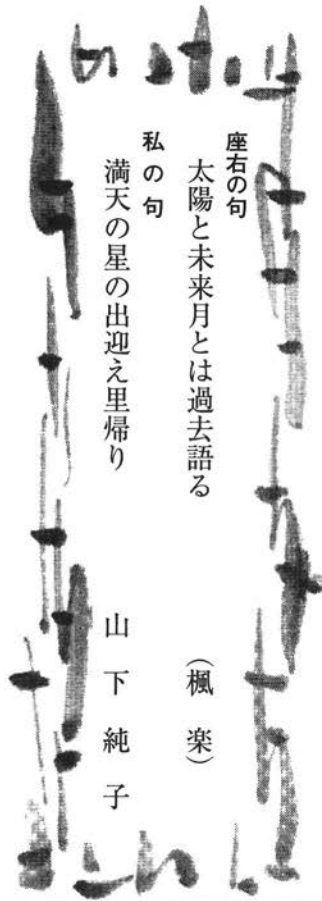 座右の句
太陽と未来月とは過去語る
（楓楽）
私の句
満天の星の出迎え里帰り
山下純子